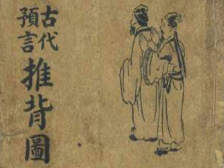 古代
預言
推背圖